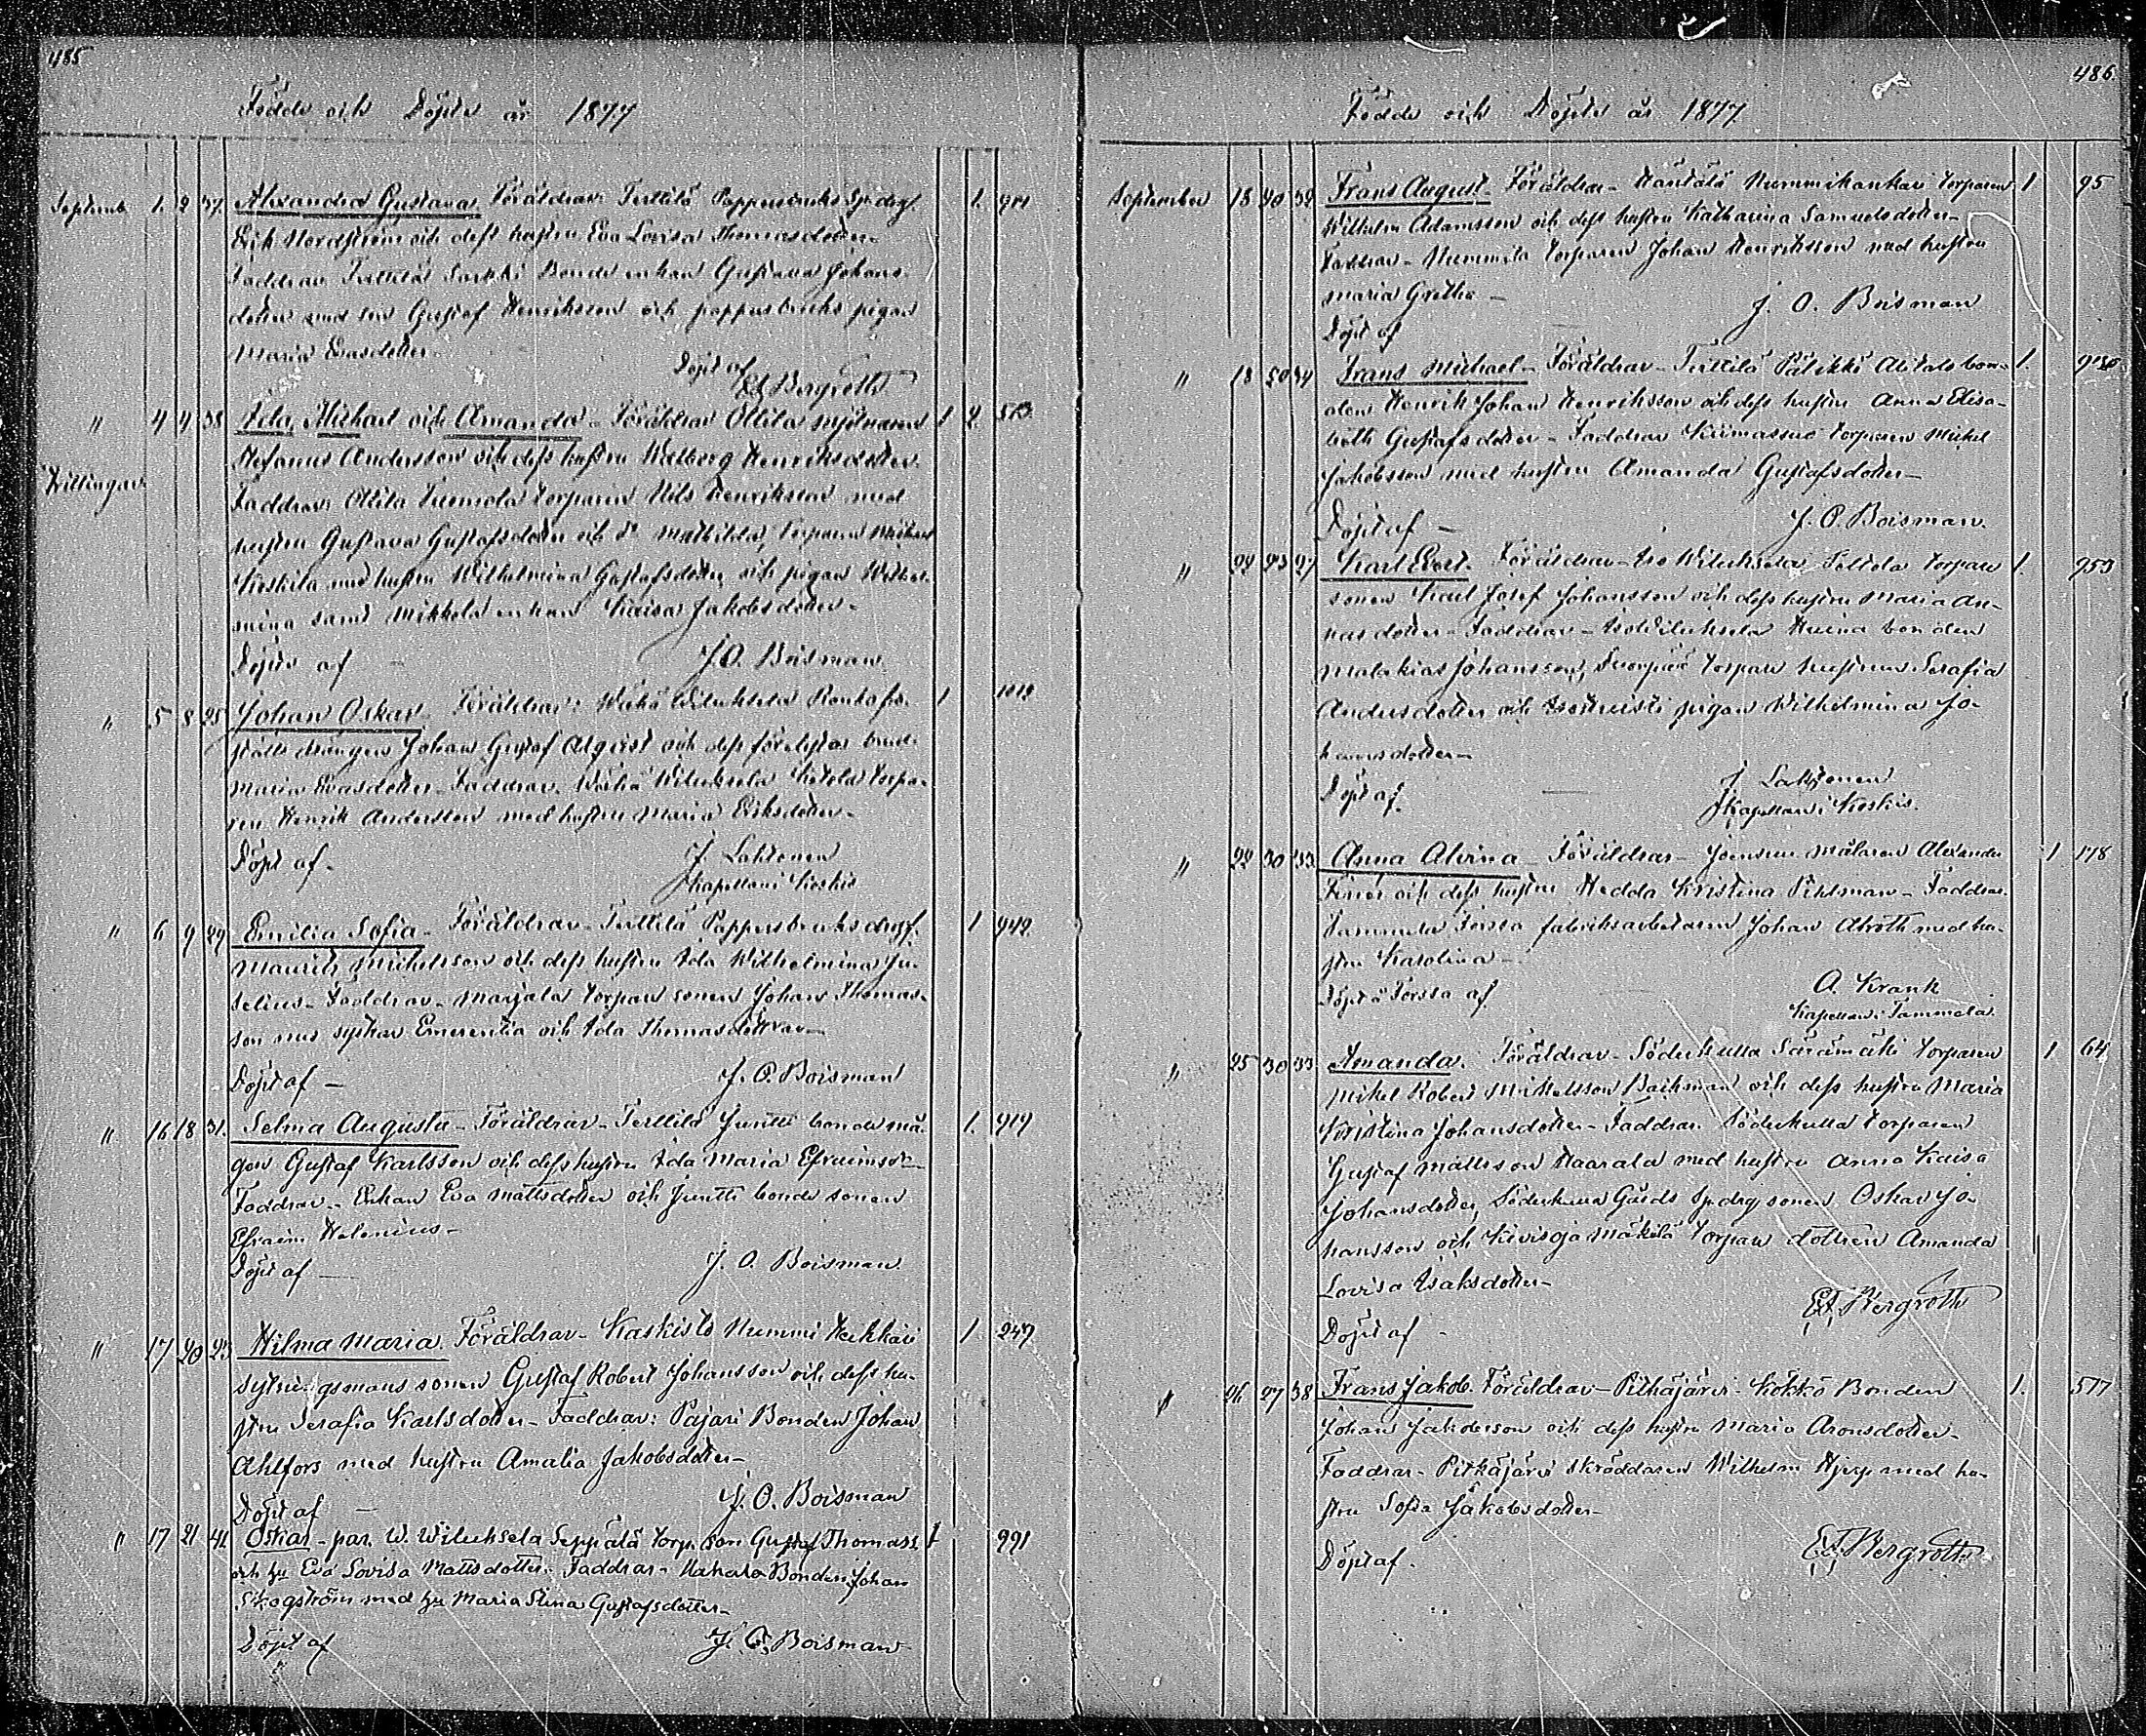 485
Födde och Döpte år 1877
Septemb. 1. 2 37. Alexandra Gustava. Föräldrar: Terttilä Pappersbruks
Erik Nordström och dess hustru Eva Lovisa Thomasdotter.
Faddrar Terttilä Sarkki Bonde enkan Gustava Johans-
dotter med son Gustaf Henriksson och pappersbruks pigan
Maria Evasdotter.
Döpt af
Ed Bergroth
" 4 4 38 Ida, Michael och Amanda - Föräldrar Ollila mjölnaren 1 2.
Stefanus Andersson och dess hustru Walborg Henriksdotter.
Trillingar
Faddrar: Ollila Tuemola torparen Nils Henriksson med
hustru Gustava Gustafsdotter och Mathilda, torparen Michael
Koskila med hustru Wilhelmina Gustafsdotter och pigan Wilhel-
mina samt Mikkola enkan Kaisa Jakobsdotter-
Döpte af - J. O. Boisman
" 5 8 25 Johan Oskar. Föräldrar: Wähä Wiluksela 1
drängen Johan Gustaf och dess
Maria Evasdotter. Faddrar. Wähä Wiluksela Ketola torpa-
ren Henrik Andersson med hustru Maria Eriksdotter-
Döpt af. J. Lahtonen
Kapellan i Koskis
" 6 9 29 Emilia Sofia - Föräldrar - Terttilä Pappersbruks 1 942
Maurits Mickelsson och dess hustru Ida Wilhelmina Ju-
selius - Faddrar - Marjala torpare sonen Johan Thomas-
son med syskon Emerentia och Ida Thomasdöttrar-
Döpt af - J. O. Boisman
" 16 18 31. Selma Augusta - Föräldrar - Terttilä Juntti bonde må- 1. 919
gen Gustaf Karlsson och dess hustru Ida Maria Efraimsdr
Faddrar - Enkan Eva Mattsdotter och Juntti bonde sonen
Efraim Helenius -
Döpt af - J. O. Boisman.
" 17 20 23 Hilma Maria. Föräldrar - Kaskisto Nummi Heikkari 1. 247
sytningsmans sonen Gustaf Robert Johansson och dess hu-
stru Serafia Karlsdotter - Faddrar: Pajari Bonden Johan
Ahlfors med hustru Amalia Jakobsdotter-
Döpt af - J. O. Boisman
" 17 21 41 Oskar - par. W. Wiluksela Seppälä torp. son Gustaf Thomass. 1 991
och hu Eva Lovisa Mattsdotter. Faddrar - Bonden Johan
Skogström med hu Maria Stina Gustafsdotter-
Döpt af J. O. Boisman
486.
Födde och Döpte år 1877
September 18 20 39 Frans August - Föräldrar - Häntälä Nummikankar torparen 1 95
Wilhelm Adamsson och dess hustru Katharina Samuelsdotter-
Faddrar - Nummila torparen Johan Henriksson med hustru
Maria Gretha -
J. O. Boisman
Döpt af
" 18 34 Frans Michael - Föräldrar - Terttilä Pälikkö Alitalo bon- 1.
den Henrik Johan Henriksson och dess hustru Anna Elisa-
beth Gustafsdotter - Faddrar Kiimassuo torparen Mickel
Jakobsson med hustru Amanda Gustafsdotter-
Döpt af - J. O. Boisman.
" 22 23 27 Karl Evert. Föräldrar - Iso Wiluksela Toltola torpare 1. 953
sonen Karl Josef Johansson och dess hustru Maria An-
nasdotter - Faddrar - Iso Wiluksela bonden
Malakias Johansson, torpare hustrun Serafia
Andersdotter och pigan Wilhelmina Jo-
hansdotter-
Döpt af. J. Lahtonen
Kapellan i Koskis.
" 22 30 33 Anna Alvina - Föräldrar - Joensuu målaren Alexander 1 178
och dess hustru Hedda Kristina Pihlman - Faddrar.
Tammela Forssa fabriksarbetaren Johan Alroth med hu-
stru Karolina -
Döpt i Forssa af A. Krank
Kapellan i Tammela.
" 25 30 33. Amanda. Föräldrar - Söderkulla Säämäki torparen 1 64
Mikel Robert Mikkelsson Backman och dess hustru Maria
Kristina Johansdotter - Faddrar. Söderkulla torparen
Gustaf Mattsson Haarala med hustru Anna Kaisa
Johansdotter, Söderkulla Gårds sonen Oskar Jo-
hansson och Kivisoja Mäkilä torpare dottren Amanda
Lovisa Isaksdotter-
Ed. Bergroth
Döpt af -
" 26 27 38 Frans Jakob. Föräldrar - Pitkäjärvi - Kökkö Bonden 1. 517
Johan Jakobsson och dess hustru Maria Aronsdotter-
Faddrar - Pitkäjärvi skräddaren Wilhelm Hjerp med hu-
stru Sofia Jakobsdotter-
Döpt af. Ed. Bergroth